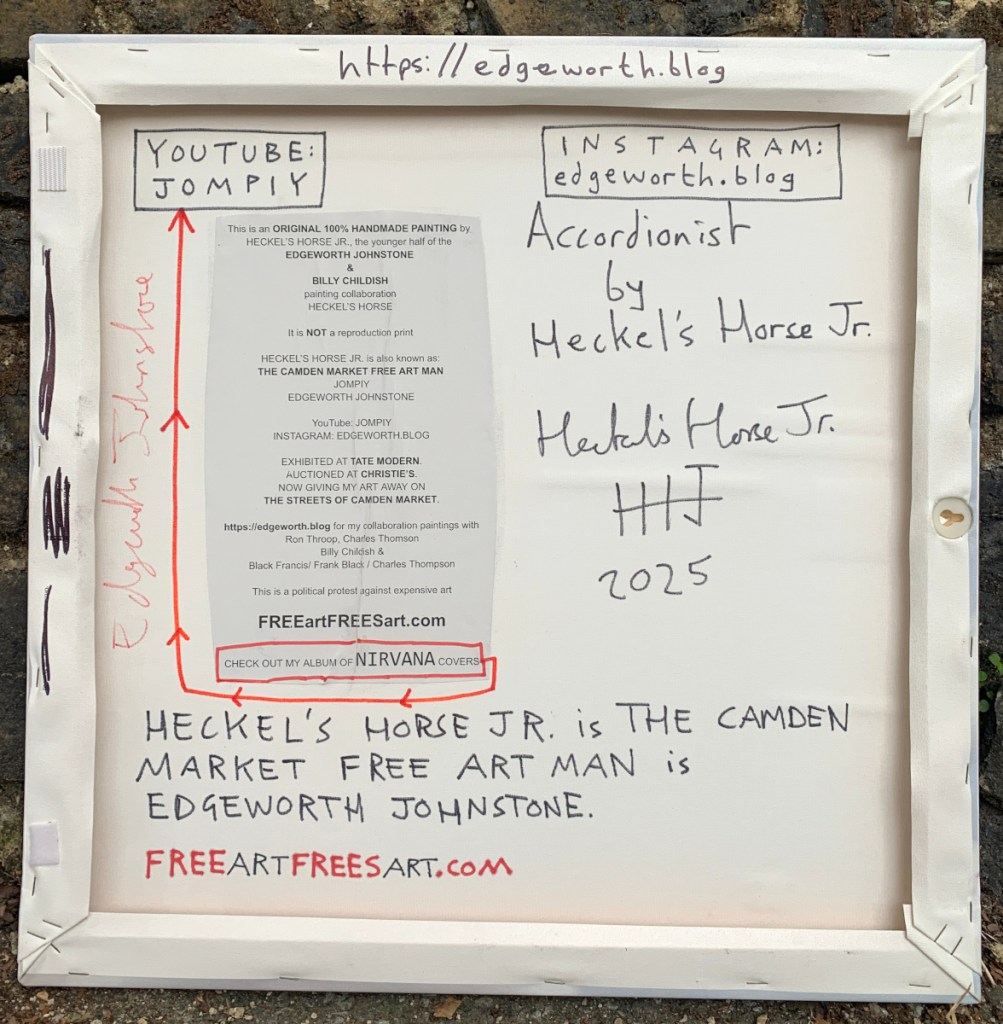 https://edgeworth.blog
YOUTUBE:
JOMPIY
INSTAGRAM:
edgeworth.blog
This is an ORIGINAL 100% HANDMADE PAINTING by
HECKEL'S HORSE JR., the younger half of the
EDGEWORTH JOHNSTONE
&
BILLY CHILDISH
painting collaboration
HECKEL'S HORSE
It is NOT a reproduction print
HECKEL'S HORSE JR. is also known as:
THE CAMDEN MARKET FREE ART MAN
JOMPIY
EDGEWORTH JOHNSTONE
YouTube: JOMPIY
INSTAGRAM: EDGEWORTH.BLOG
EXHIBITED AT TATE MODERN.
AUCTIONED AT CHRISTIE'S.
NOW GIVING MY ART AWAY ON
THE STREETS OF CAMDEN MARKET.
https://edgeworth.blog for my collaboration paintings with
Ron Throop, Charles Thomson
Billy Childish &
Black Francis/ Frank Black / Charles Thompson
This is a political protest against expensive art
FREEartFREESart.com
CHECK OUT MY ALBUM OF NIRVANA COVERS
Edgeworth Johnstone
Accordionist
by
Heckel's Horse Jr.
Heckel's Horse Jr.
HHJ
2025
HECKEL'S HORSE JR. is THE CAMDEN
MARKET FREE ART MAN is
EDGEWORTH JOHNSTONE.
FREEARTFREESART.COM